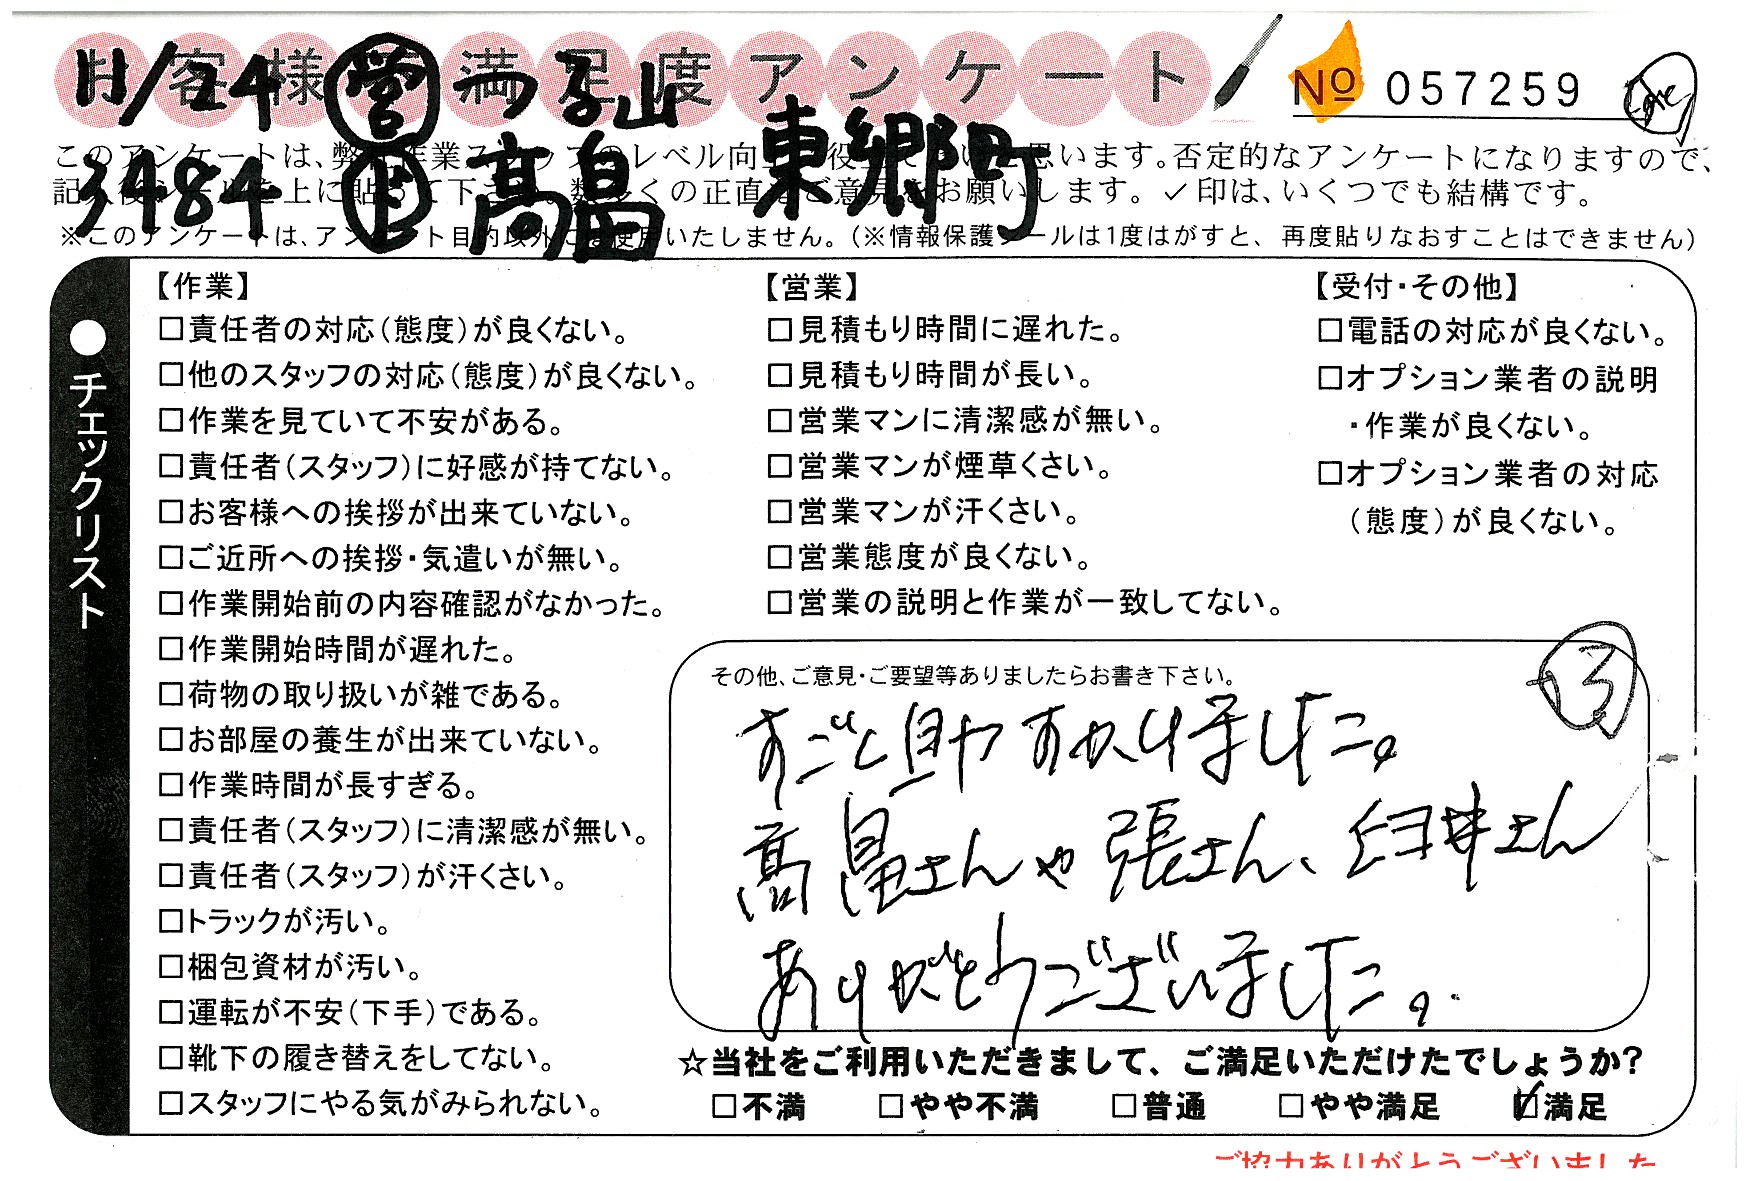 お客様満足度アンケート
No 057259
11/24 営 つる山
3484 ド 高畠 東郷町
このアンケートは、弊社作業スタッフのレベル向上に役立てたいと思います。否定的なアンケートになりますので、
記入後シールを上に貼って下さい。数多くの正直なご意見をお願いします。✓印は、いくつでも結構です。
※このアンケートは、アンケート目的以外には使用いたしません。（※情報保護シールは1度はがすと、再度貼りなおすことはできません）
●チェックリスト
【作業】
□責任者の対応（態度）が良くない。
□他のスタッフの対応（態度）が良くない。
□作業を見ていて不安がある。
□責任者（スタッフ）に好感が持てない。
□お客様への挨拶が出来ていない。
□ご近所への挨拶・気遣いが無い。
□作業開始前の内容確認がなかった。
□作業開始時間が遅れた。
□荷物の取り扱いが雑である。
□お部屋の養生が出来ていない。
□作業時間が長すぎる。
□責任者（スタッフ）に清潔感が無い。
□責任者（スタッフ）が汗くさい。
□トラックが汚い。
□梱包資材が汚い。
□運転が不安（下手）である。
□靴下の履き替えをしてない。
□スタッフにやる気がみられない。
【営業】
□見積もり時間に遅れた。
□見積もり時間が長い。
□営業マンに清潔感が無い。
□営業マンが煙草くさい。
□営業マンが汗くさい。
□営業態度が良くない。
□営業の説明と作業が一致してない。
【受付・その他】
□電話の対応が良くない。
□オプション業者の説明
・作業が良くない。
□オプション業者の対応
（態度）が良くない。
その他、ご意見・ご要望等ありましたらお書き下さい。
すごく助かりました。
高畠さんや張さん、臼井さん
ありがとうございました。
☆当社をご利用いただきまして、ご満足いただけたでしょうか?
□不満 □やや不満 □普通 □やや満足 ☑満足
ご協力ありがとうございました